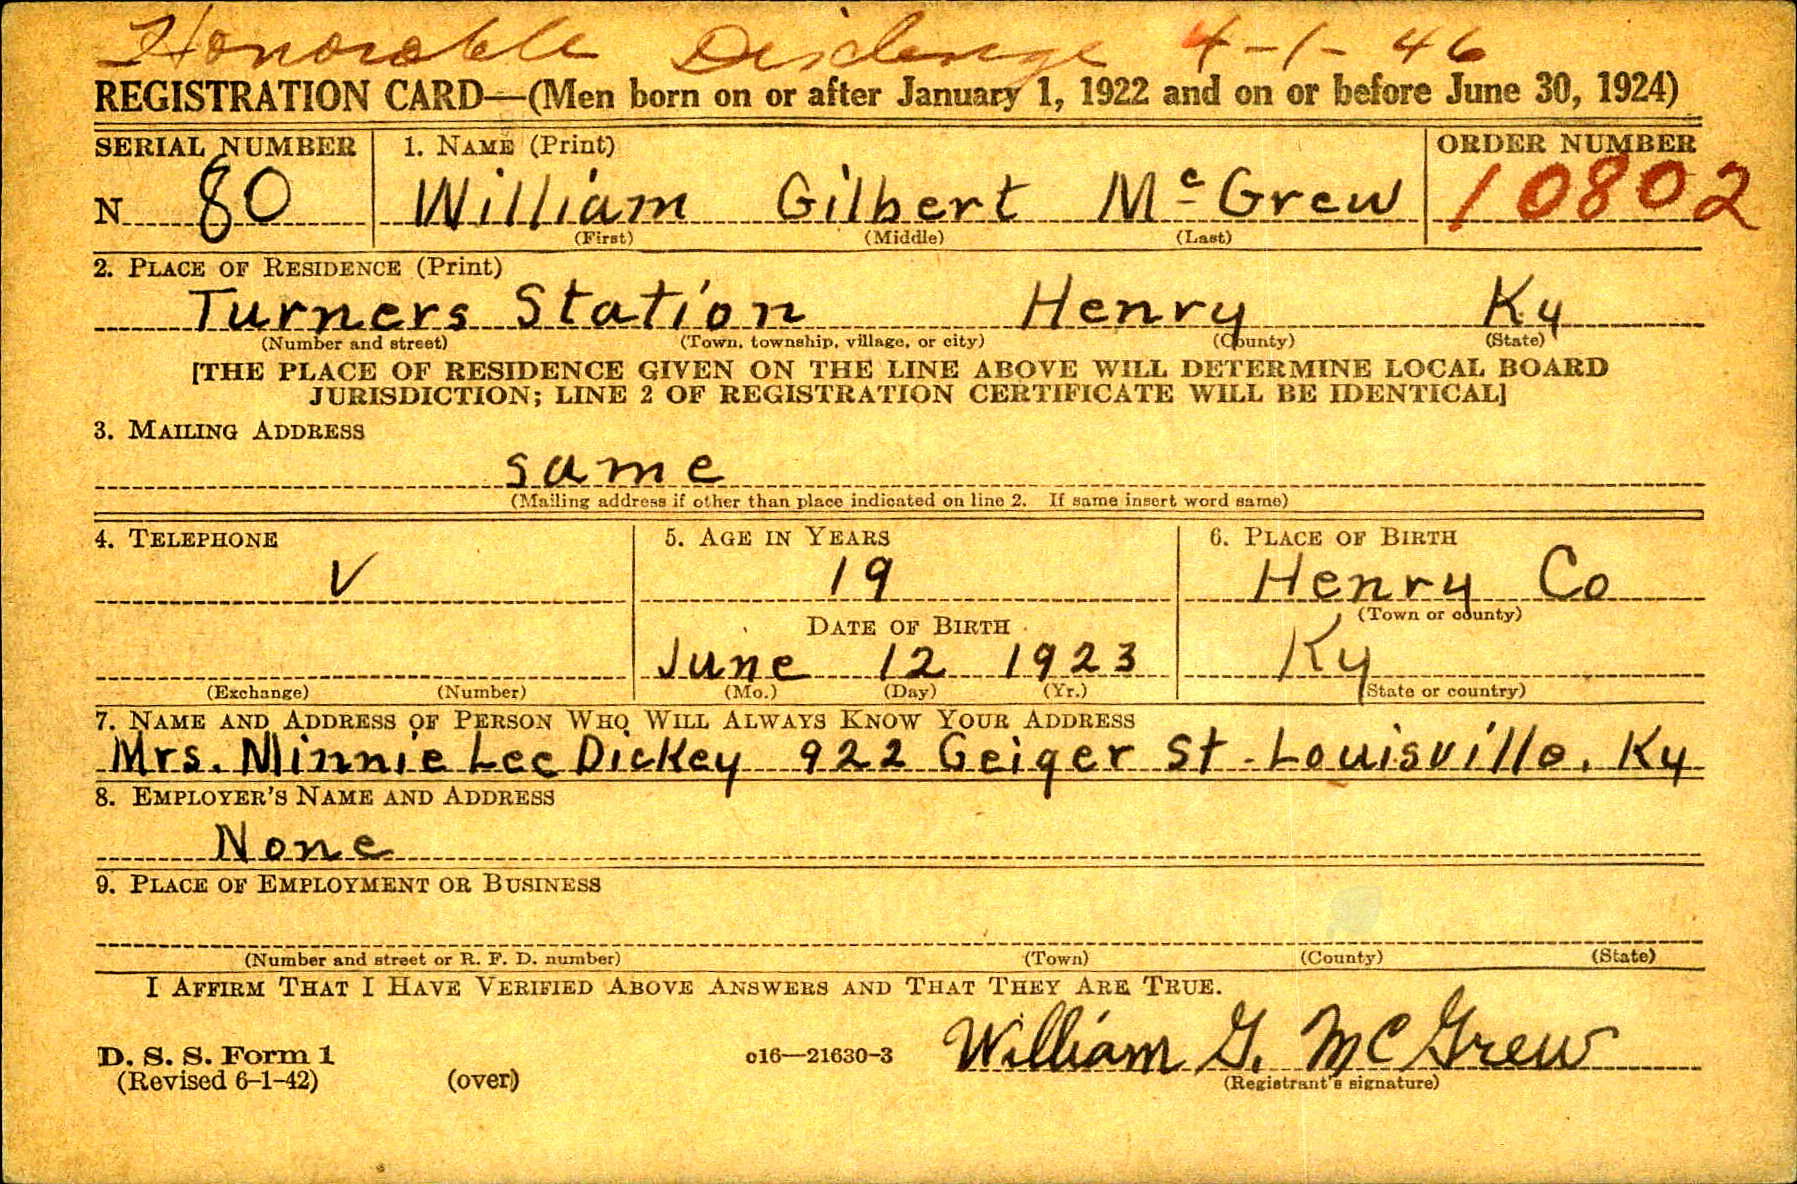 Honorable Discharge 4-1-46
REGISTRATION CARD—(Men born on or after January 1, 1922 and on or before June 30, 1924)
SERIAL NUMBER 1. NAME (Print) ORDER NUMBER
N 80 William Gilbert McGrew 10802
(First) (Middle) (Last)
2. PLACE OF RESIDENCE (Print)
Turners Station Henry Ky
(Number and street) (Town, township, village, or city) (County) (State)
[THE PLACE OF RESIDENCE GIVEN ON THE LINE ABOVE WILL DETERMINE LOCAL BOARD
JURISDICTION; LINE 2 OF REGISTRATION CERTIFICATE WILL BE IDENTICAL]
3. MAILING ADDRESS
same
(Mailing address if other than place indicated on line 2. If same insert word same)
4. TELEPHONE 5. AGE IN YEARS 6. PLACE OF BIRTH
V 19 Henry Co
(Town or county)
DATE OF BIRTH
June 12 1923 Ky
(Exchange) (Number) (Mo.) (Day) (Yr.) (State or country)
7. NAME AND ADDRESS OF PERSON WHO WILL ALWAYS KNOW YOUR ADDRESS
Mrs. Minnie Lee Dickey 922 Geiger St. Louisville, Ky
8. EMPLOYER'S NAME AND ADDRESS
None
9. PLACE OF EMPLOYMENT OR BUSINESS
(Number and street or R. F. D. number) (Town) (County) (State)
I AFFIRM THAT I HAVE VERIFIED ABOVE ANSWERS AND THAT THEY ARE TRUE.
D. S. S. Form 1 o16—21630-3 William G. McGrew
(Revised 6-1-42) (over) (Registrant's signature)